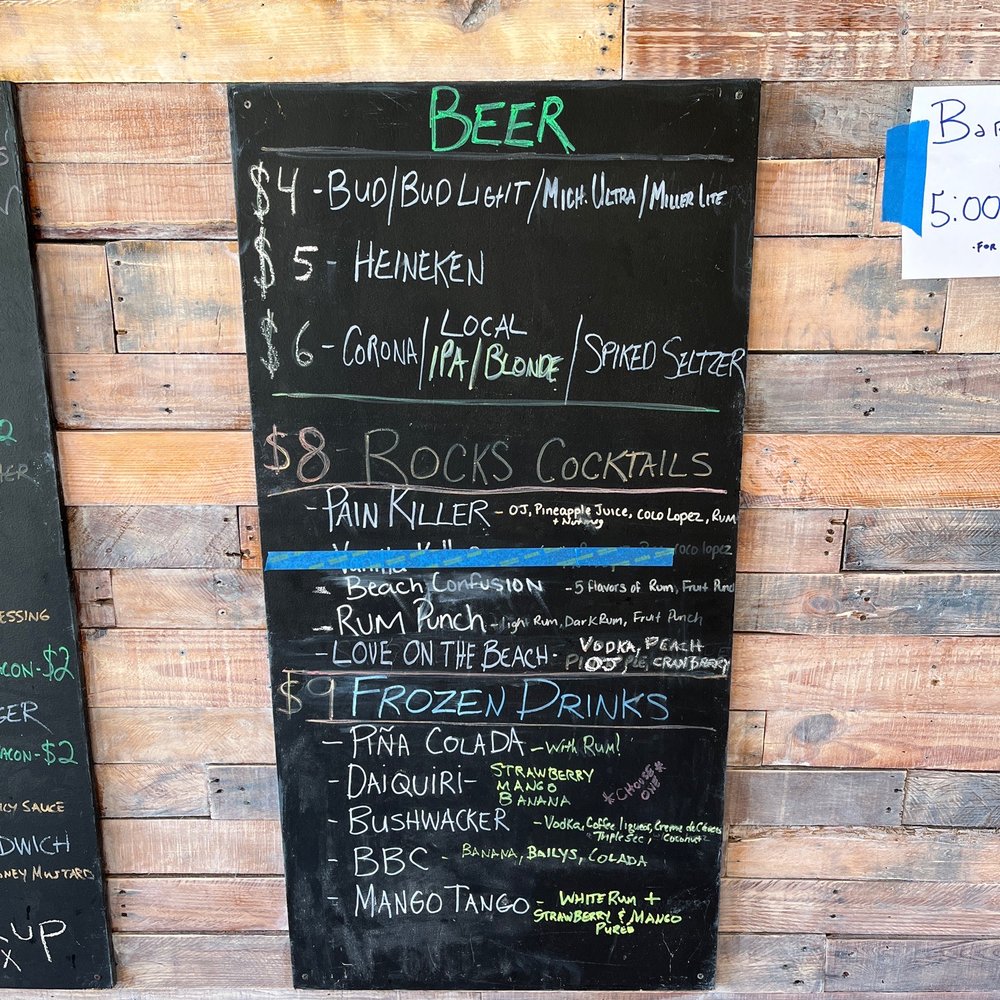 BEER
$4 - BUD/BUD LIGHT/MICH. ULTRA/MILLER LITE
$5 - HEINEKEN
$6 - CORONA/LOCAL IPA/BLONDE/SPIKED SELTZER
$8 ROCKS COCKTAILS
- PAIN KILLER - OJ, Pineapple Juice, Coco Lopez, Rum
+ Nutmeg
coco lopez
- Beach Confusion - 5 flavors of Rum, Fruit Punch
- Rum Punch - light Rum, Dark Rum, Fruit Punch
- LOVE ON THE BEACH - VODKA, PEACH
OJ, CRANBERRY
$9 FROZEN DRINKS
- PIÑA COLADA - With Rum!
- DAIQUIRI - STRAWBERRY
MANGO
BANANA
*CHOOSE ONE*
- BUSHWACKER - Vodka, Coffee liqueur, Creme de Cacao
Triple Sec, Coconut
- BBC - BANANA, BAILYS, COLADA
- MANGO TANGO - WHITE RUM +
STRAWBERRY & MANGO
PUREE
Bar
5:00
·FOR
2
ESSING
CON-$2
GER
ACON-$2
CY SAUCE
DWICH
NEY MUSTARD
UP
X